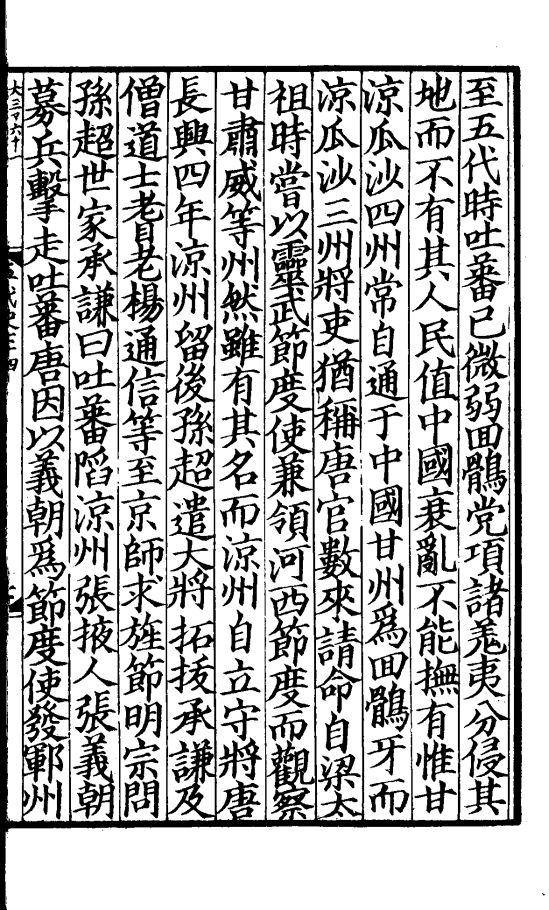 至五代時吐蕃已微弱回鶻党項諸羌夷分侵其
地而不有其人民值中國衰亂不能撫有惟甘
涼瓜沙四州常自通于中國甘州爲回鶻牙而
涼瓜沙三州將吏猶稱唐官數來請命自梁太
祖時嘗以靈武節度使兼領河西節度而觀察
甘肅威等州然雖有其名而涼州自立守將唐
長興四年涼州留後孫超遣大將拓拔承謙及
僧道士耆老楊通信等至京師求旌節明宗問
孫超世家承謙曰吐蕃陷涼州張掖人張義朝
募兵擊走吐蕃唐因以義朝爲節度使發鄆州